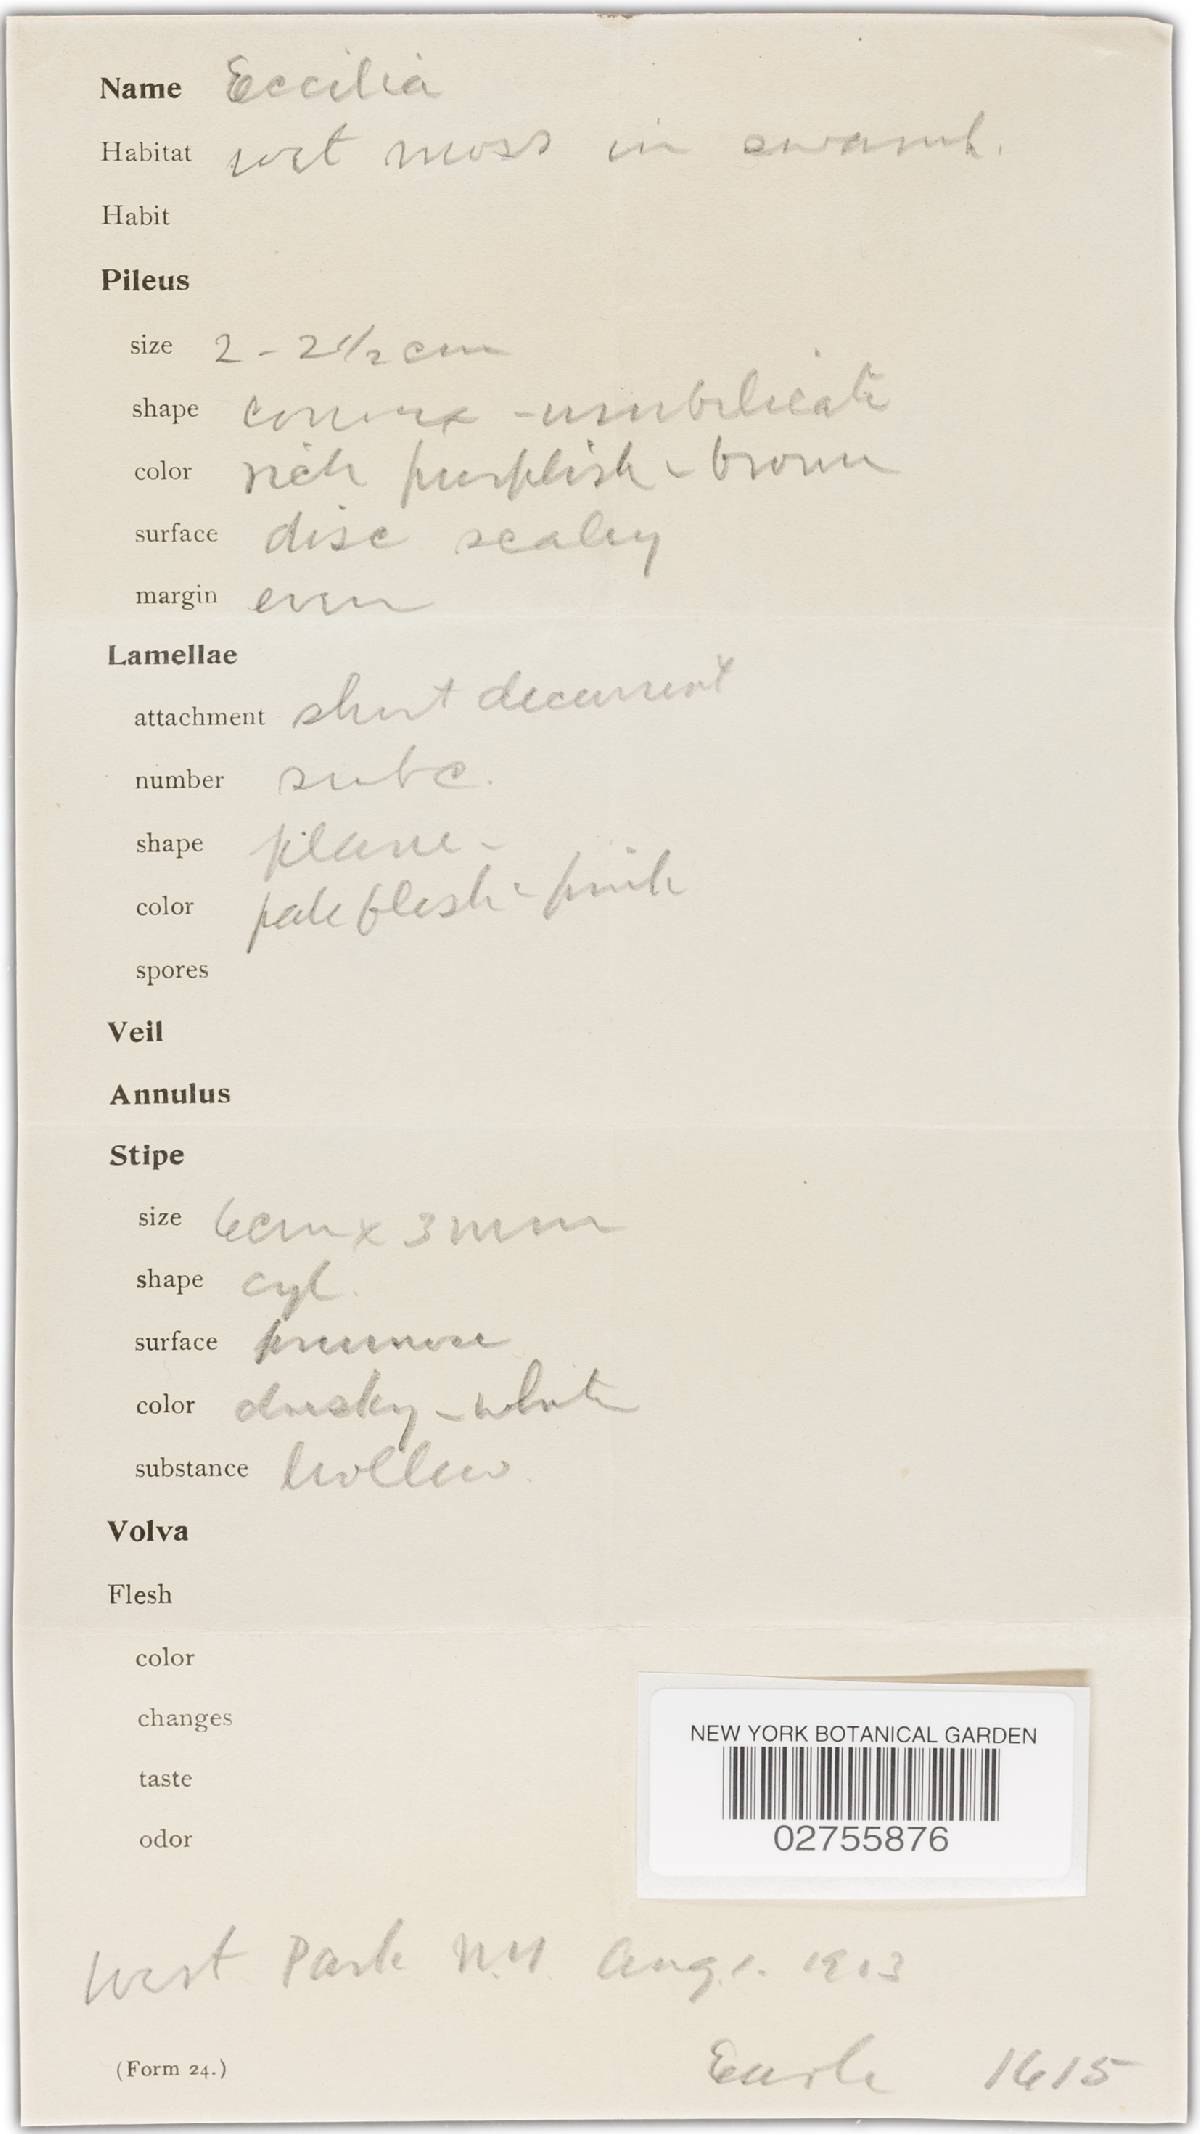 Name Eccilia
Habitat wet moss in swamp.
Habit
Pileus
size 2 - 2 1/2 cm
shape convex - umbilicate
color rich purplish - brown
surface disc scaley
margin even
Lamellae
attachment short decurrent
number subc.
shape plane -
color pale flesh - pink
spores
Veil
Annulus
Stipe
size 6cm x 3mm
shape cyl.
surface pruinose
color dusky - white
substance hollow
Volva
Flesh
color
changes
taste
odor
NEW YORK BOTANICAL GARDEN
02755876
West Park N.Y. Aug. 1. 1903
(Form 24.) Earle 1615